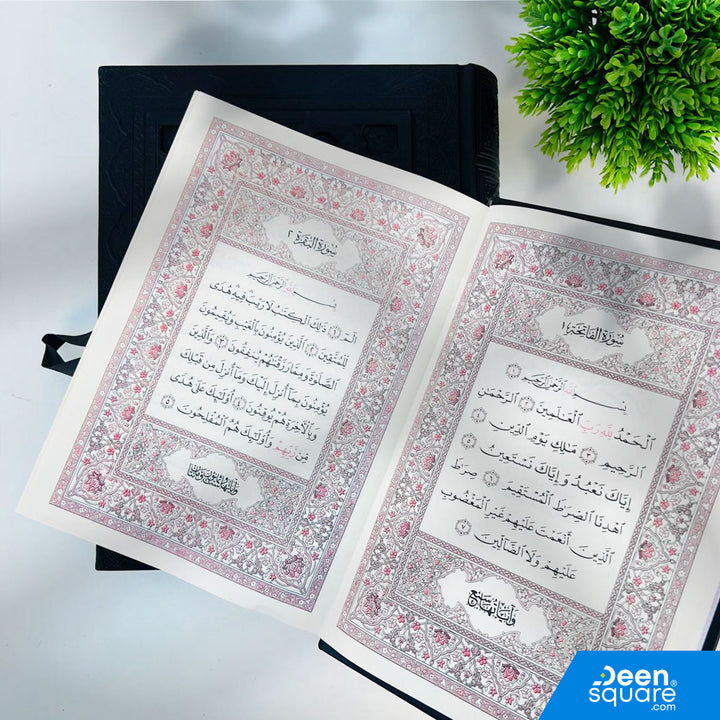 سُورَةُ الفَاتِحَةِ ١
بِسْمِ اللَّهِ الرَّحْمَٰنِ الرَّحِيمِ ﴿١﴾
الْحَمْدُ لِلَّهِ رَبِّ الْعَالَمِينَ ﴿٢﴾ الرَّحْمَٰنِ
الرَّحِيمِ ﴿٣﴾ مَالِكِ يَوْمِ الدِّينِ ﴿٤﴾
إِيَّاكَ نَعْبُدُ وَإِيَّاكَ نَسْتَعِينُ ﴿٥﴾
اهْدِنَا الصِّرَاطَ الْمُسْتَقِيمَ ﴿٦﴾ صِرَاطَ
الَّذِينَ أَنْعَمْتَ عَلَيْهِمْ غَيْرِ الْمَغْضُوبِ
عَلَيْهِمْ وَلَا الضَّالِّينَ ﴿٧﴾
وَآيَاتُهَا سَبْعٌ
سُورَةُ البَقَرَةِ ٢
بِسْمِ اللَّهِ الرَّحْمَٰنِ الرَّحِيمِ
الٓمٓ ﴿١﴾ ذَٰلِكَ الْكِتَابُ لَا رَيْبَ فِيهِ هُدًى
لِلْمُتَّقِينَ ﴿٢﴾ الَّذِينَ يُؤْمِنُونَ بِالْغَيْبِ وَيُقِيمُونَ
الصَّلَاةَ وَمِمَّا رَزَقْنَاهُمْ يُنْفِقُونَ ﴿٣﴾ وَالَّذِينَ
يُؤْمِنُونَ بِمَا أُنْزِلَ إِلَيْكَ وَمَا أُنْزِلَ مِنْ قَبْلِكَ
وَبِالْآخِرَةِ هُمْ يُوقِنُونَ ﴿٤﴾ أُولَٰئِكَ عَلَىٰ هُدًى
مِنْ رَبِّهِمْ وَأُولَٰئِكَ هُمُ الْمُفْلِحُونَ ﴿٥﴾
Deen
square®
.com